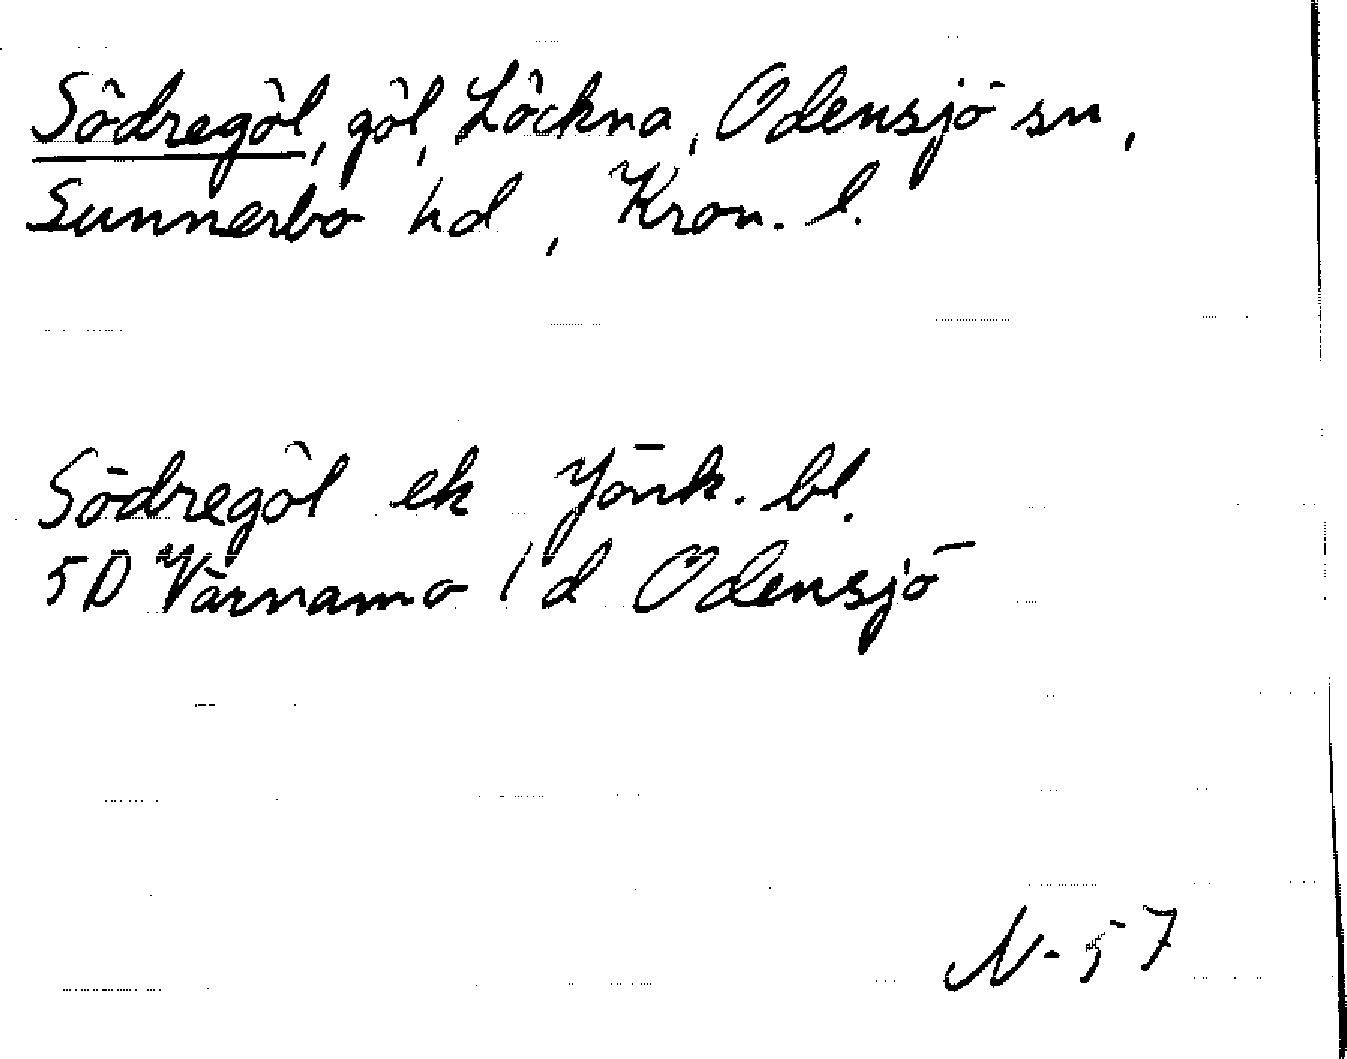 Södregöl, göl, Löckna, Odensjö sn,
Sunnerbo hd, Kron. l.
Södregöl ek Jönk. bl.
5D Värnamo 1d Odensjö
N-57